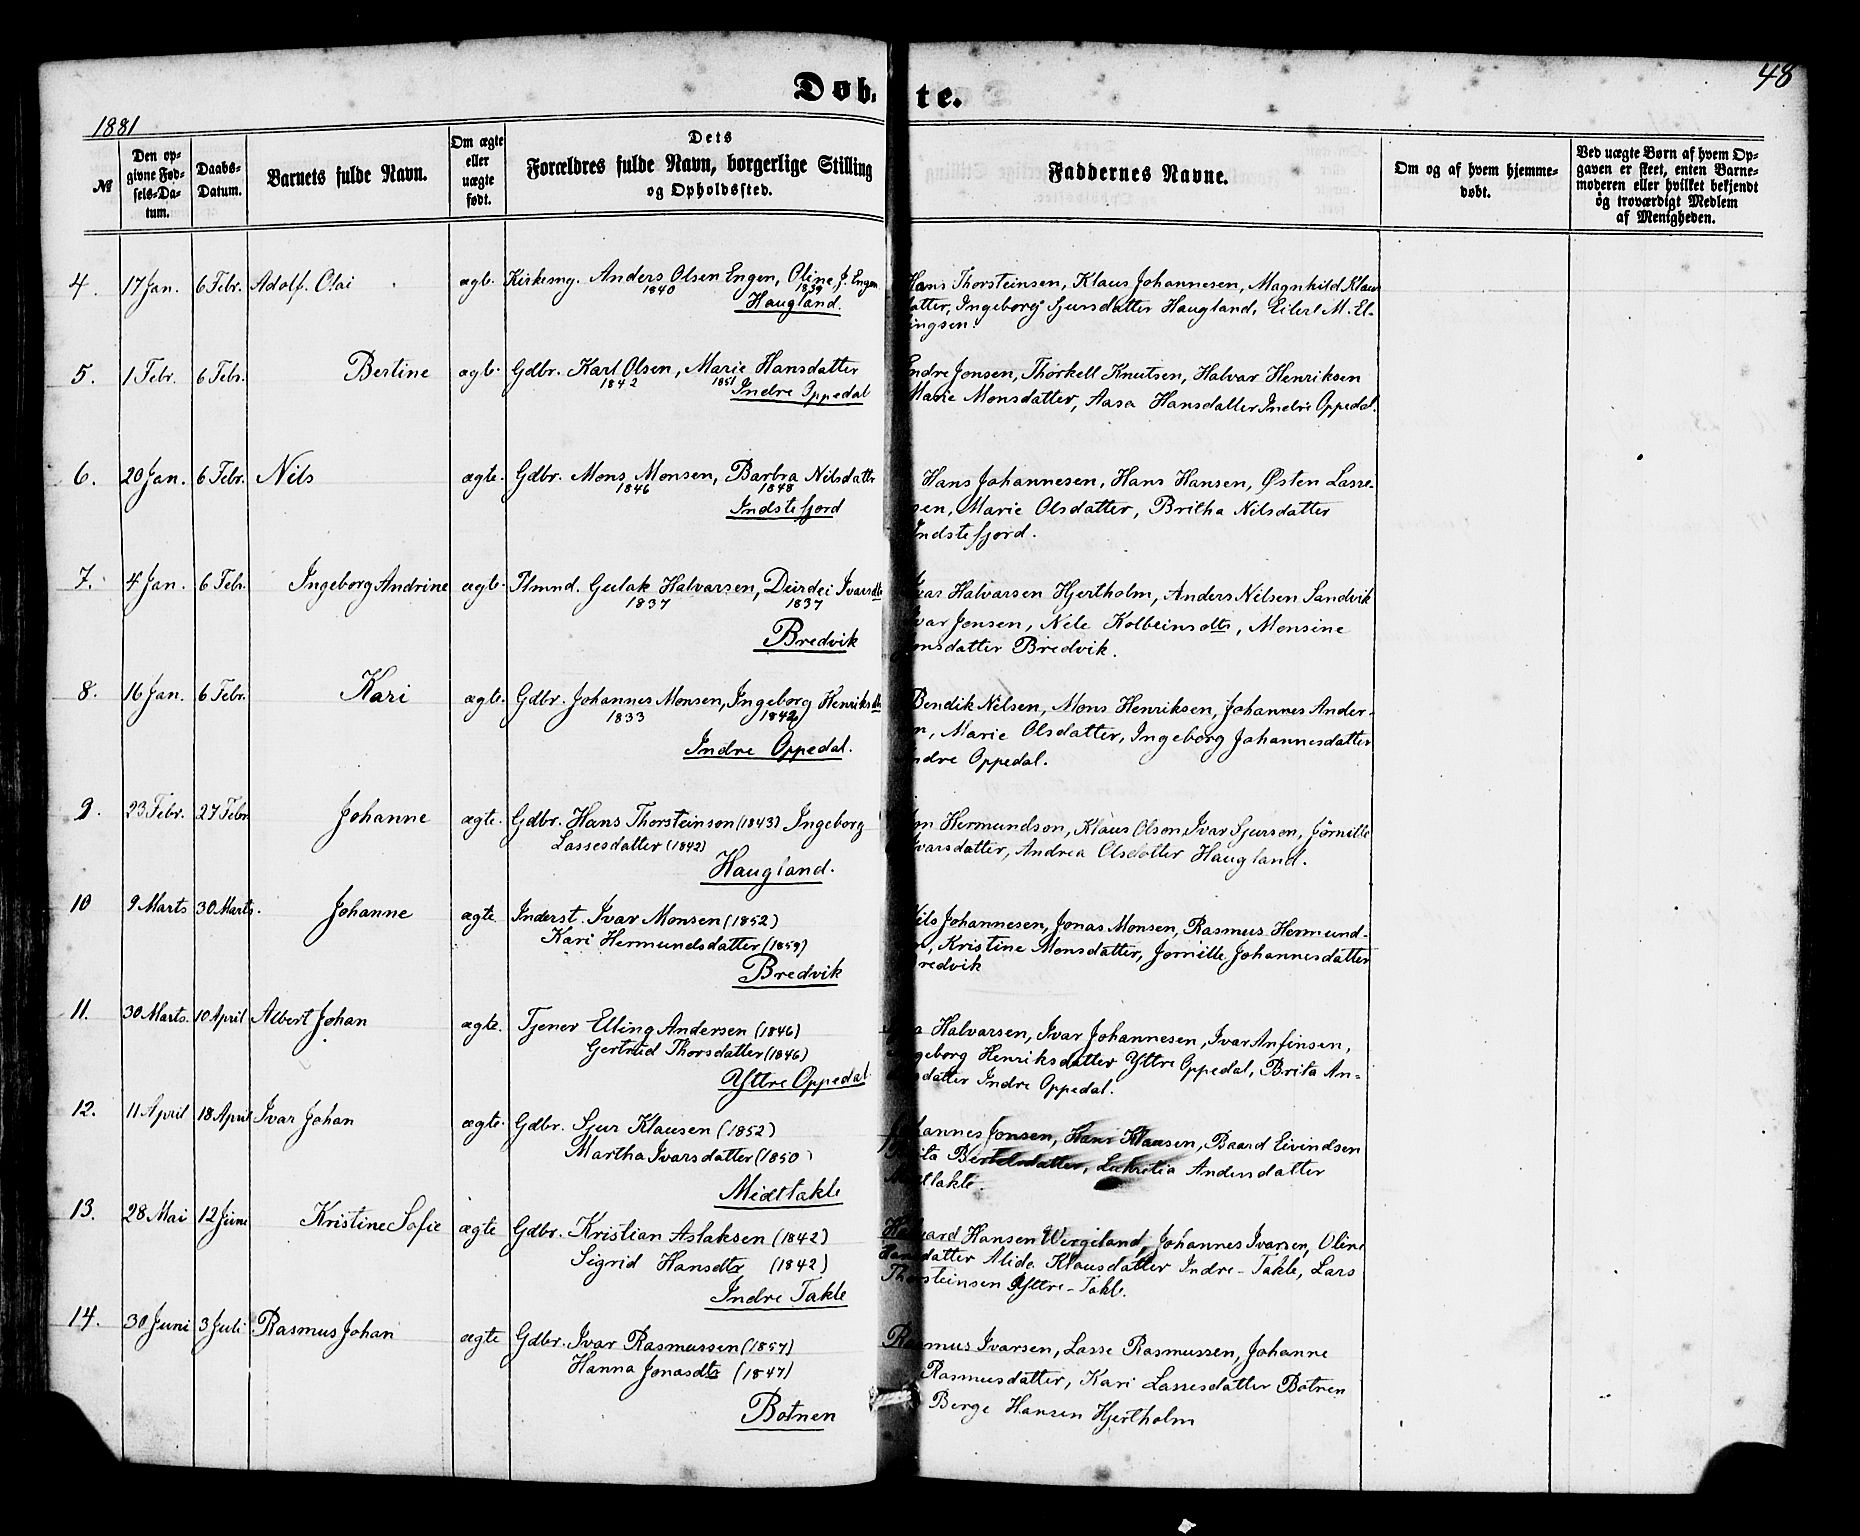 Døb, te.
48
1881
№
Den op-
givne Fød-
sels-Da-
tum.
Daabs-
Datum.
Barnets fulde Navn.
Om ægte
eller
uægte
født.
Dets
Forældres fulde Navn, borgerlige Stilling
og Opholdssted.
Faddernes Navne.
Om og af hvem hjemme-
døbt.
Ved uægte Børn af hvem Op-
gaven er skeet, enten Barne-
moderen eller hvilket bekjendt
og troværdigt Medlem
af Menigheden.
4. 17 Jan. 6 Febr. Adolf. Olai ægt. Kirkesng. Anders Olsen Engen, Oline J. Engen
1840 1839
Haugland.
Hans Thorsteinsen, Klaus Johannesen, Magnhild Klaus
datter, Ingeborg Sjursdatter Haugland, Eilert M. El-
ingsen.
5. 1 Febr. 6 Febr. Bertine ægt. Gdbr. Karl Olsen, Marie Hansdatter
1842 1851
Indre Oppedal
Endre Jonsen, Thorkell Knutsen, Halvar Henriksen
Marie Monsdatter, Aasa Hansdatter Indre Oppedal.
6. 20 Jan. 6 Febr. Nils ægte. Gdbr. Mons Monsen, Barbra Nilsdattr
1846 1848
Indstefjord
Hans Johannesen, Hans Hansen, Østen Lasse-
sen, Marie Olsdatter, Britha Nilsdatter
Indstefjord.
7. 4 Jan. 6 Febr. Ingeborg Andrine ægt. Plmnd. Gulak Halvarsen, Deirdei Ivarsdtr
1837 1837
Bredvik
Ivar Halvarsen Hjertholm, Anders Nilsen Sandvik
Ivar Jonsen, Nele Kolbeinsdtr, Monsine
onsdatter Bredvik.
8. 16 Jan. 6 Febr. Kari ægte. Gdbr. Johannes Monsen, Ingeborg Henriksdtr
1833 1842
Indre Oppedal.
Bendik Nilsen, Mons Henriksen, Johannes Ander-
n, Marie Olsdatter, Ingeborg Johannesdatter
ndre Oppedal.
9. 23 Febr. 27 Febr Johanne ægte. Gdbr. Hans Thorsteinson (1843) Ingeborg
Lassesdatter (1842)
Haugland.
on Hermundson, Klaus Olson, Ivar Sjurson, Jørnille
Ivarsdatter, Andrea Olsdatter Haugland.
10 9 Marts 30 Marts. Johanne ægte Inderst. Ivar Monsen (1852)
Kari Hermundsdatter (1859)
Bredvik
Nils Johannesen, Jonas Monsen, Rasmus Hermund-
Kristine Monsdatter, Jørnille Johannesdatter
redvik
11. 30 Marts. 10 April Albert Johan ægte. Tjener Elling Andersen (1846)
Gertrud Thorsdatter (1846)
Yttre Oppedal
Halvarsen, Ivar Johannesen, Ivar Anfinsen,
geborg Henriksdatter Yttre Oppedal, Brita An-
sdatter Indre Oppedal.
12. 11 April 18 April Ivar Johan ægte. Gdbr. Sjur Klausen (1852)
Martha Ivarsdatter (1850)
Midttakle
Johannes Jonsen, Hans Klausen, Baard Eivindsen
ita Bertelsdatter, Lukretia Andersdatter
Midttakle.
13. 28 Mai 12 Juni Kristine Sofie ægte Gdbr. Kristian Aslaksen (1842)
Sigrid Hansdtr (1842)
Indre Takle
Halvard Hansen Wergeland, Johannes Ivarsen, Oline
Hansdatter Alida Klausdatter Indre-Takle, Lars
Thorsteinsen Yttre-Takle.
14. 30 Juni 3 Juli Rasmus Johan ægte Gdbr. Ivar Rasmussen (1857)
Hanna Jonasdtr (1847)
Botnen
Rasmus Ivarsen, Lasse Rasmussen, Johanne
Rasmusdatter, Kari Lassesdatter Botnen
Berge Hansen Hjertholm